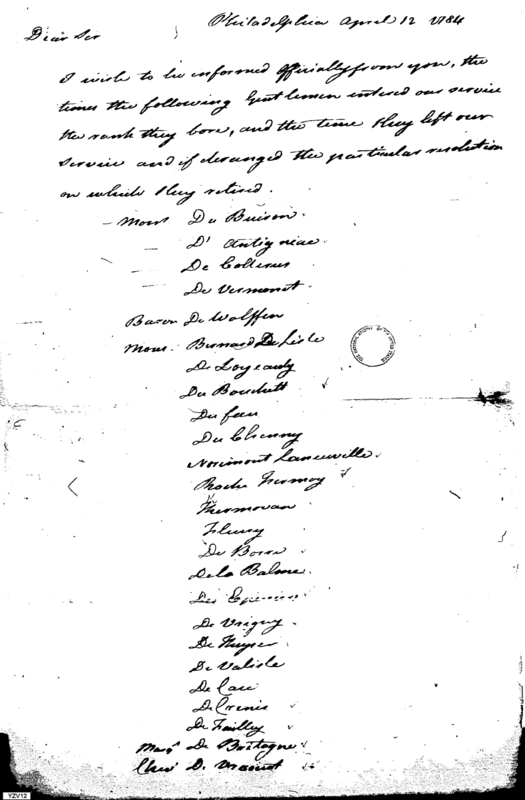 Philadelphia April 12 1784
Dear Sir
I wish to be informed officially from you, the
times the following Gentlemen entered our service
the rank they bore, and the time they left our
service and if deranged the particular resolution
on which they retired.
Mons De Buison.
D' Antigniac.
De Collerus
De Vermonet.
Baron De Wolffen
Mons. Bernard De Lisle
De Loyeauly
Du Bouchett
Du fau
Du Chenny
Norimont Laneuville
Roche Fermoy
Thermovan
Fleury
De Borre
De la Balme.
Des Epenieres
De Vrigny.
De Kuyper
De Valisle
De Crenis
De Failley
Marqs De Bretagne
Chevr D.
YZV12